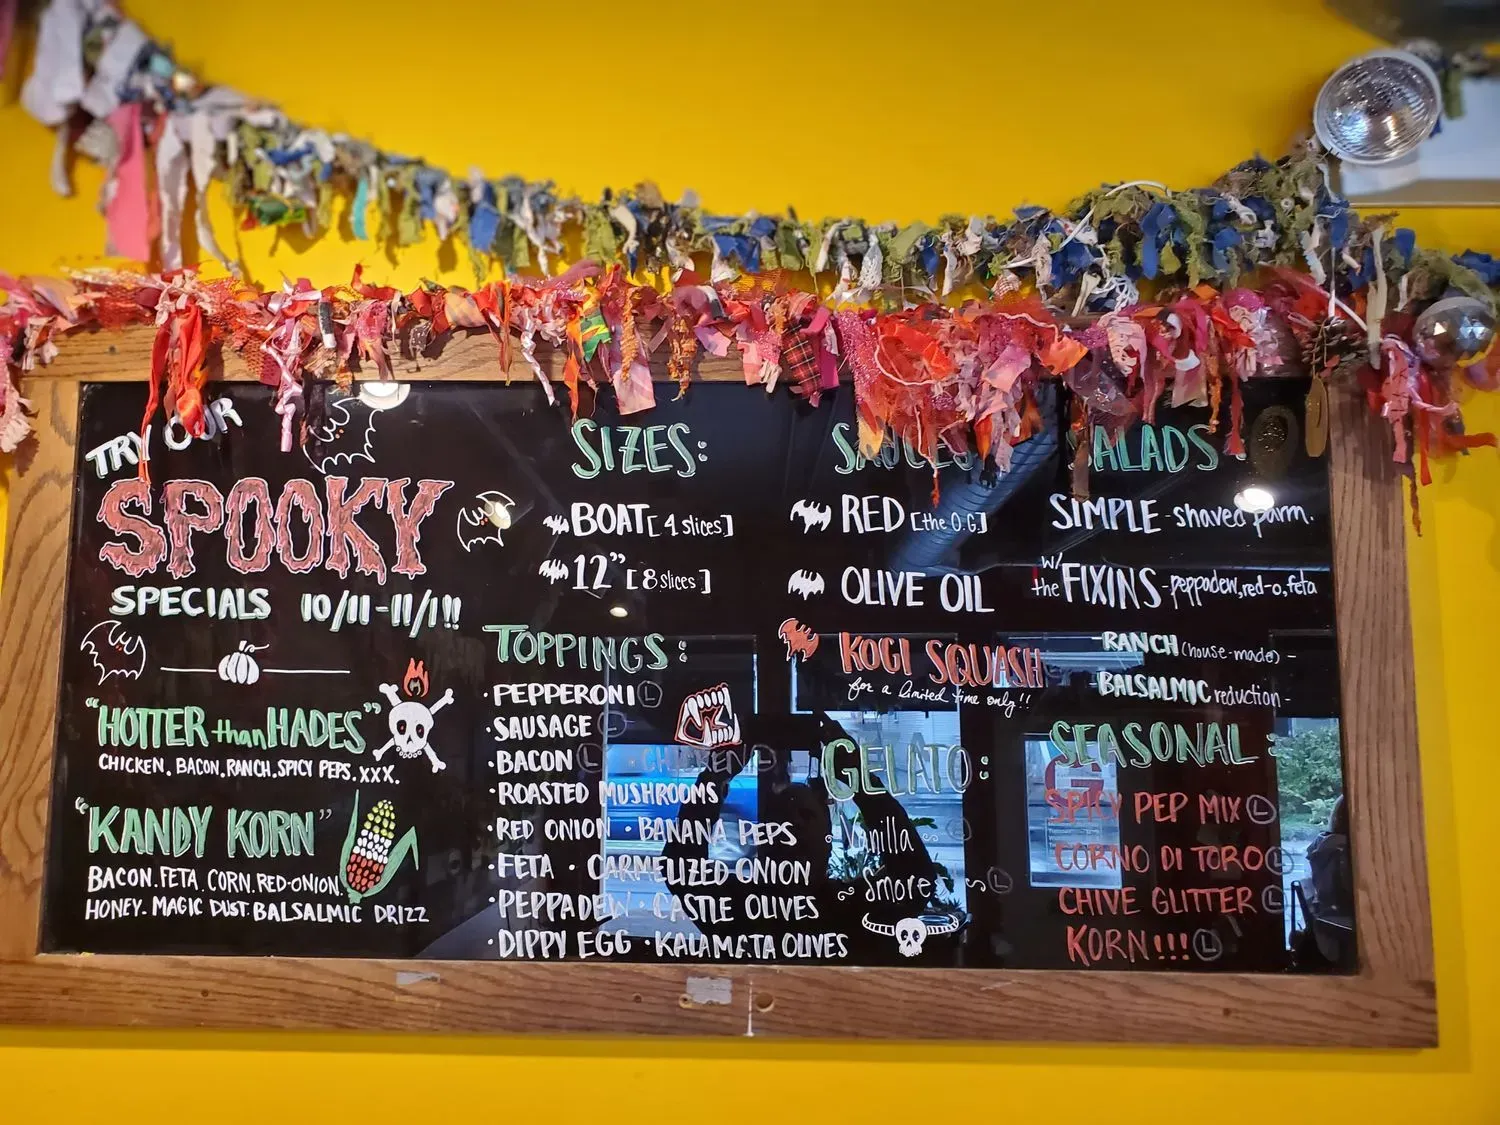 TRY OUR
SPOOKY
SPECIALS 10/11-11/1!!
"HOTTER than HADES"
CHICKEN. BACON. RANCH. SPICY PEPS. XXX.
"KANDY KORN"
BACON. FETA. CORN. RED-ONION.
HONEY. MAGIC DUST. BALSALMIC DRIZZ
SIZES:
BOAT [4 slices]
12" [8 slices]
TOPPINGS:
· PEPPERONI Ⓛ
· SAUSAGE Ⓛ
· BACON Ⓛ · CHICKEN Ⓛ
· ROASTED MUSHROOMS
· RED ONION · BANANA PEPS
· FETA · CARMELIZED ONION
· PEPPADEW · CASTLE OLIVES
· DIPPY EGG · KALAMATA OLIVES
SAUCES
RED [the O.G.]
OLIVE OIL
KOGI SQUASH
for a limited time only!!
GELATO:
Vanilla
Smores Ⓛ
SALADS
SIMPLE - shaved parm.
w/ the FIXINS - peppadew, red-o, feta
- RANCH (house-made) -
- BALSALMIC reduction -
SEASONAL:
SPICY PEP MIX Ⓛ
CORNO DI TORO Ⓛ
CHIVE GLITTER Ⓛ
KORN!!! Ⓛ